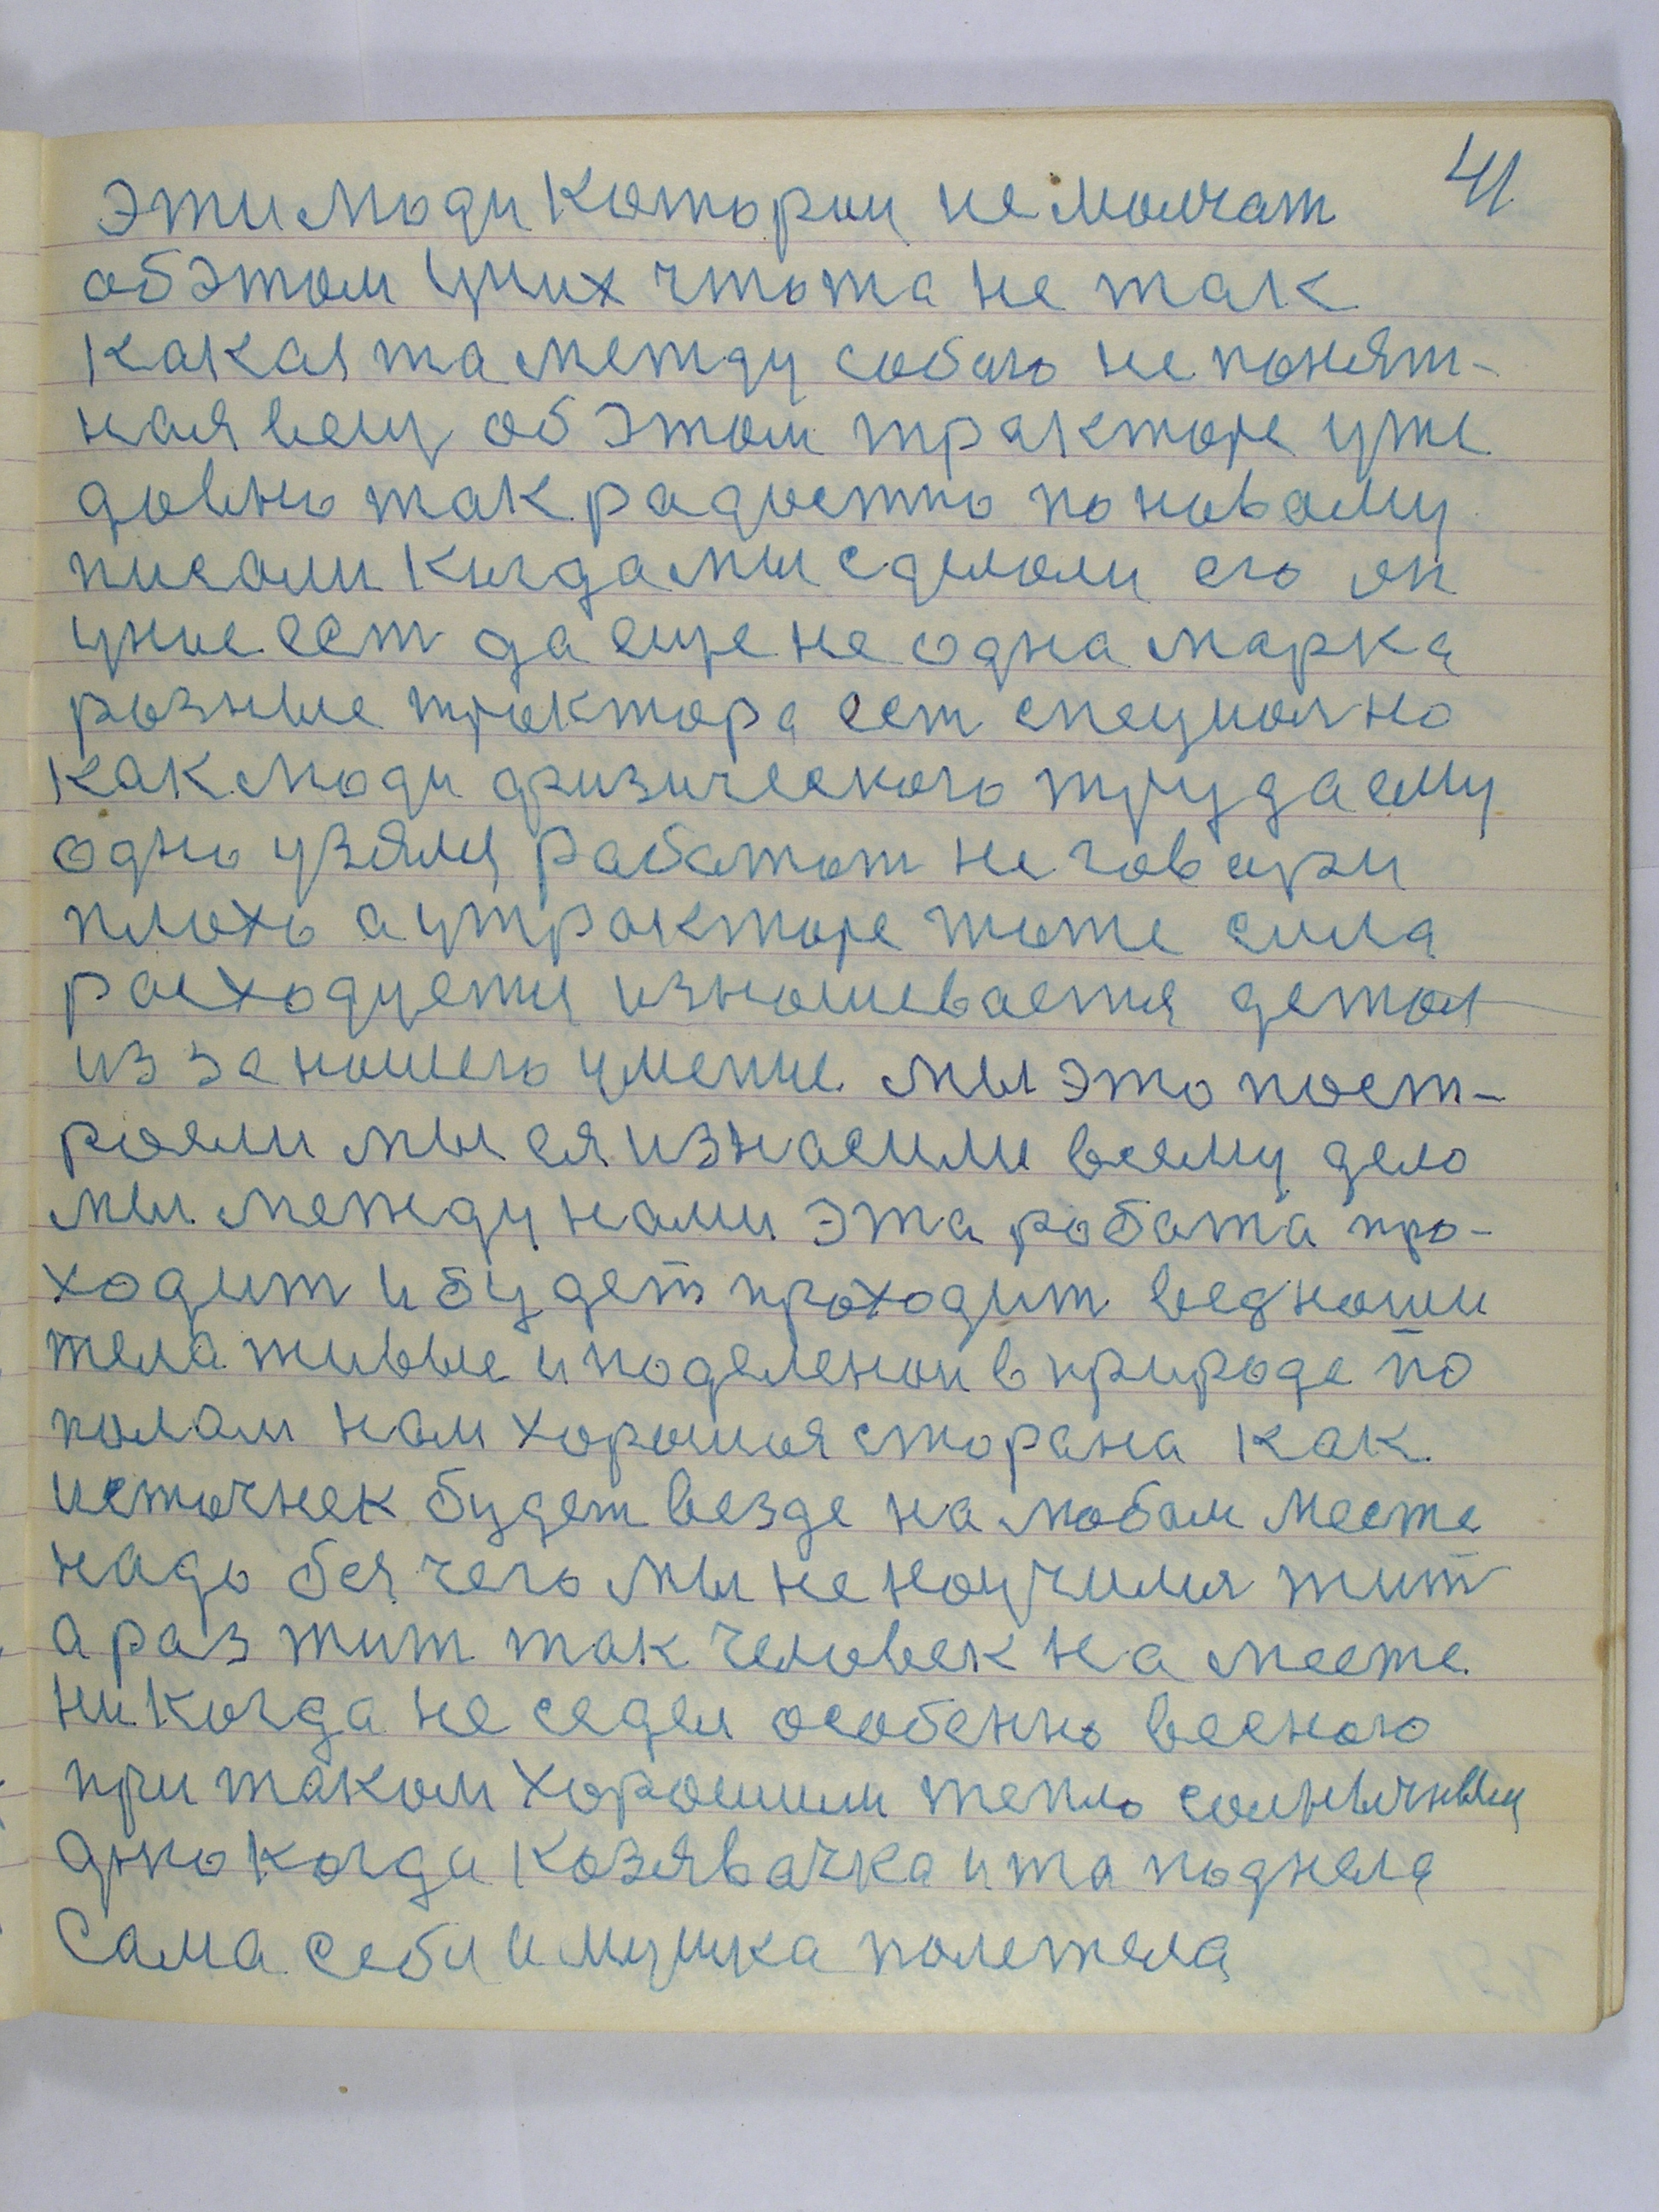 41
эти люди которои не молчат
об этом у них чтота не так
какая та между собою не понят-
ная вещ об этом тракторе уже
довно так радостно по новаму
писали когда мы сделоли его он
у нас ест да еще не одна марка
розные трактора ест специолно
как люди физического труда ему
одно узяли работат не говари
плохо а у тракторе тоже сила
расходуетця изношевается детол
из за ношего умение мы это пост-
роели мы ея изнасили всему дело
мы между нами эта робата про-
ходит и будет проходит вед ноши
тела живые и поделенои в природе по
полам нам хорошоя сторана как
источнек будет везде на любом месте
надо бея чего мы не ноучимя жит
а раз жит так человек на месте
никогда не седел особенно весною
при таком хорошим тепло солнычным
дню когда козявачка и та подняла
сама себя и мушка полетела